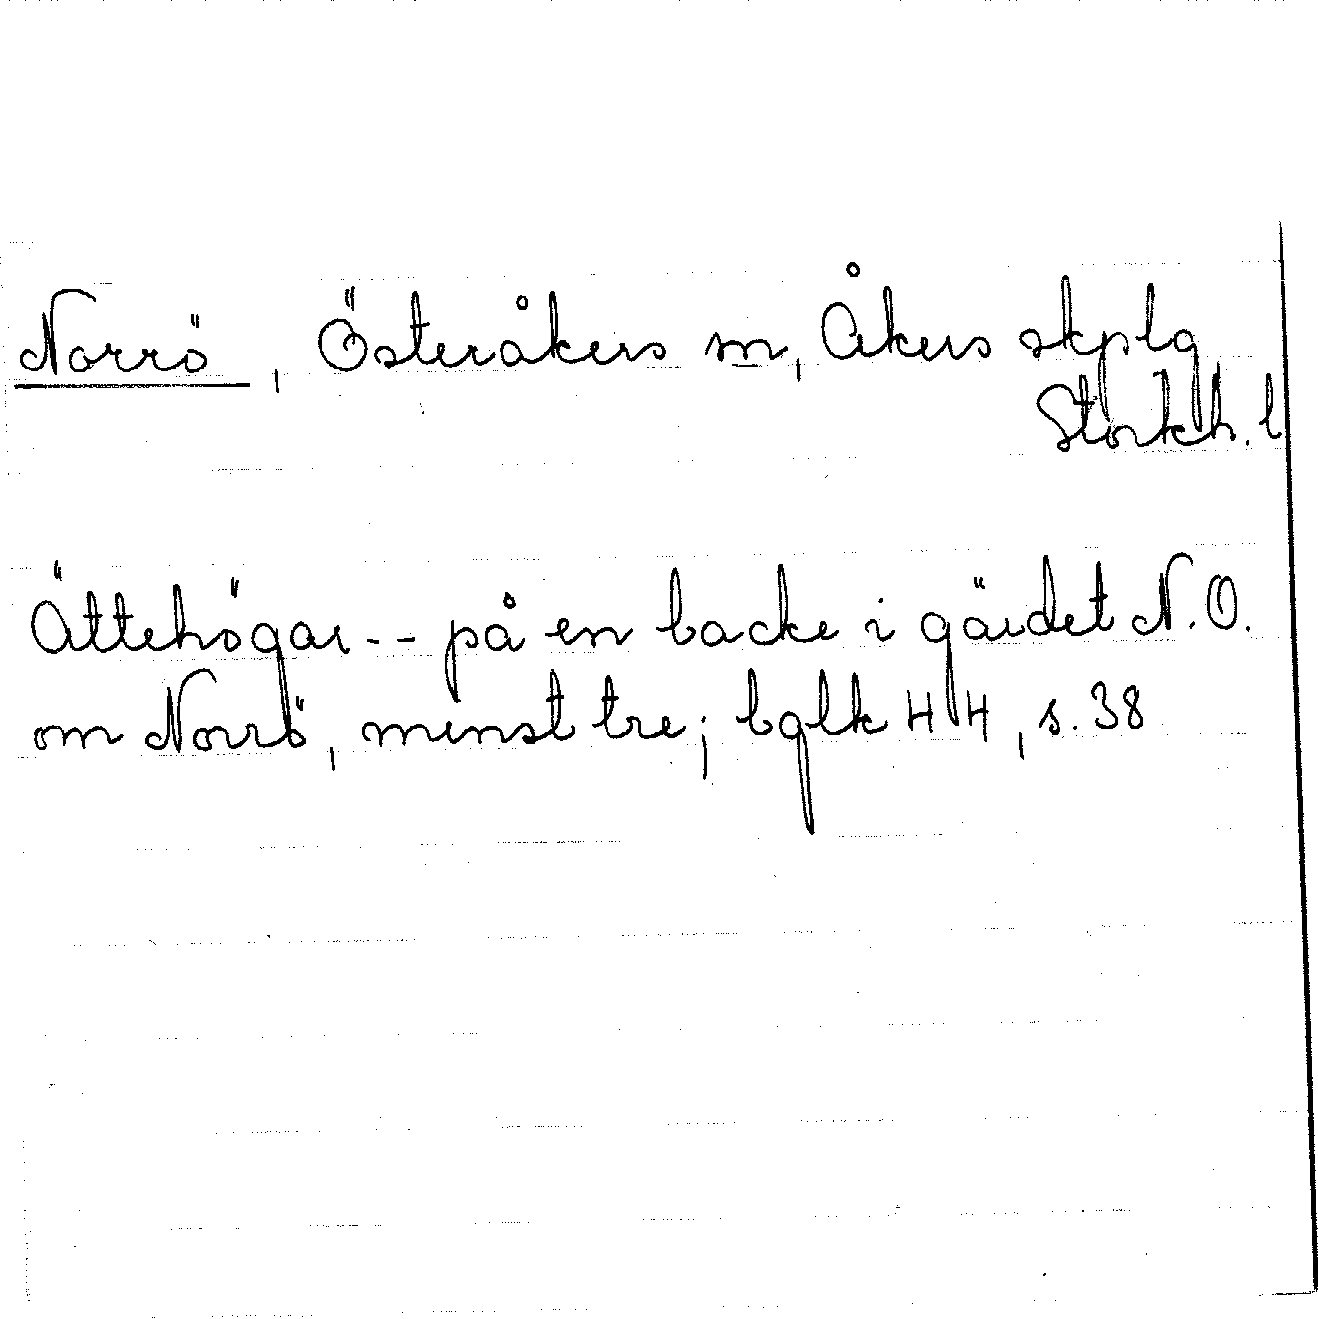 Norrö, Österåkers sn, Åkers skplg
Stockh. l
Ättehögar -- på en backe i gärdet N.O.
om Norrö, minst tre; bglk 44, s. 38